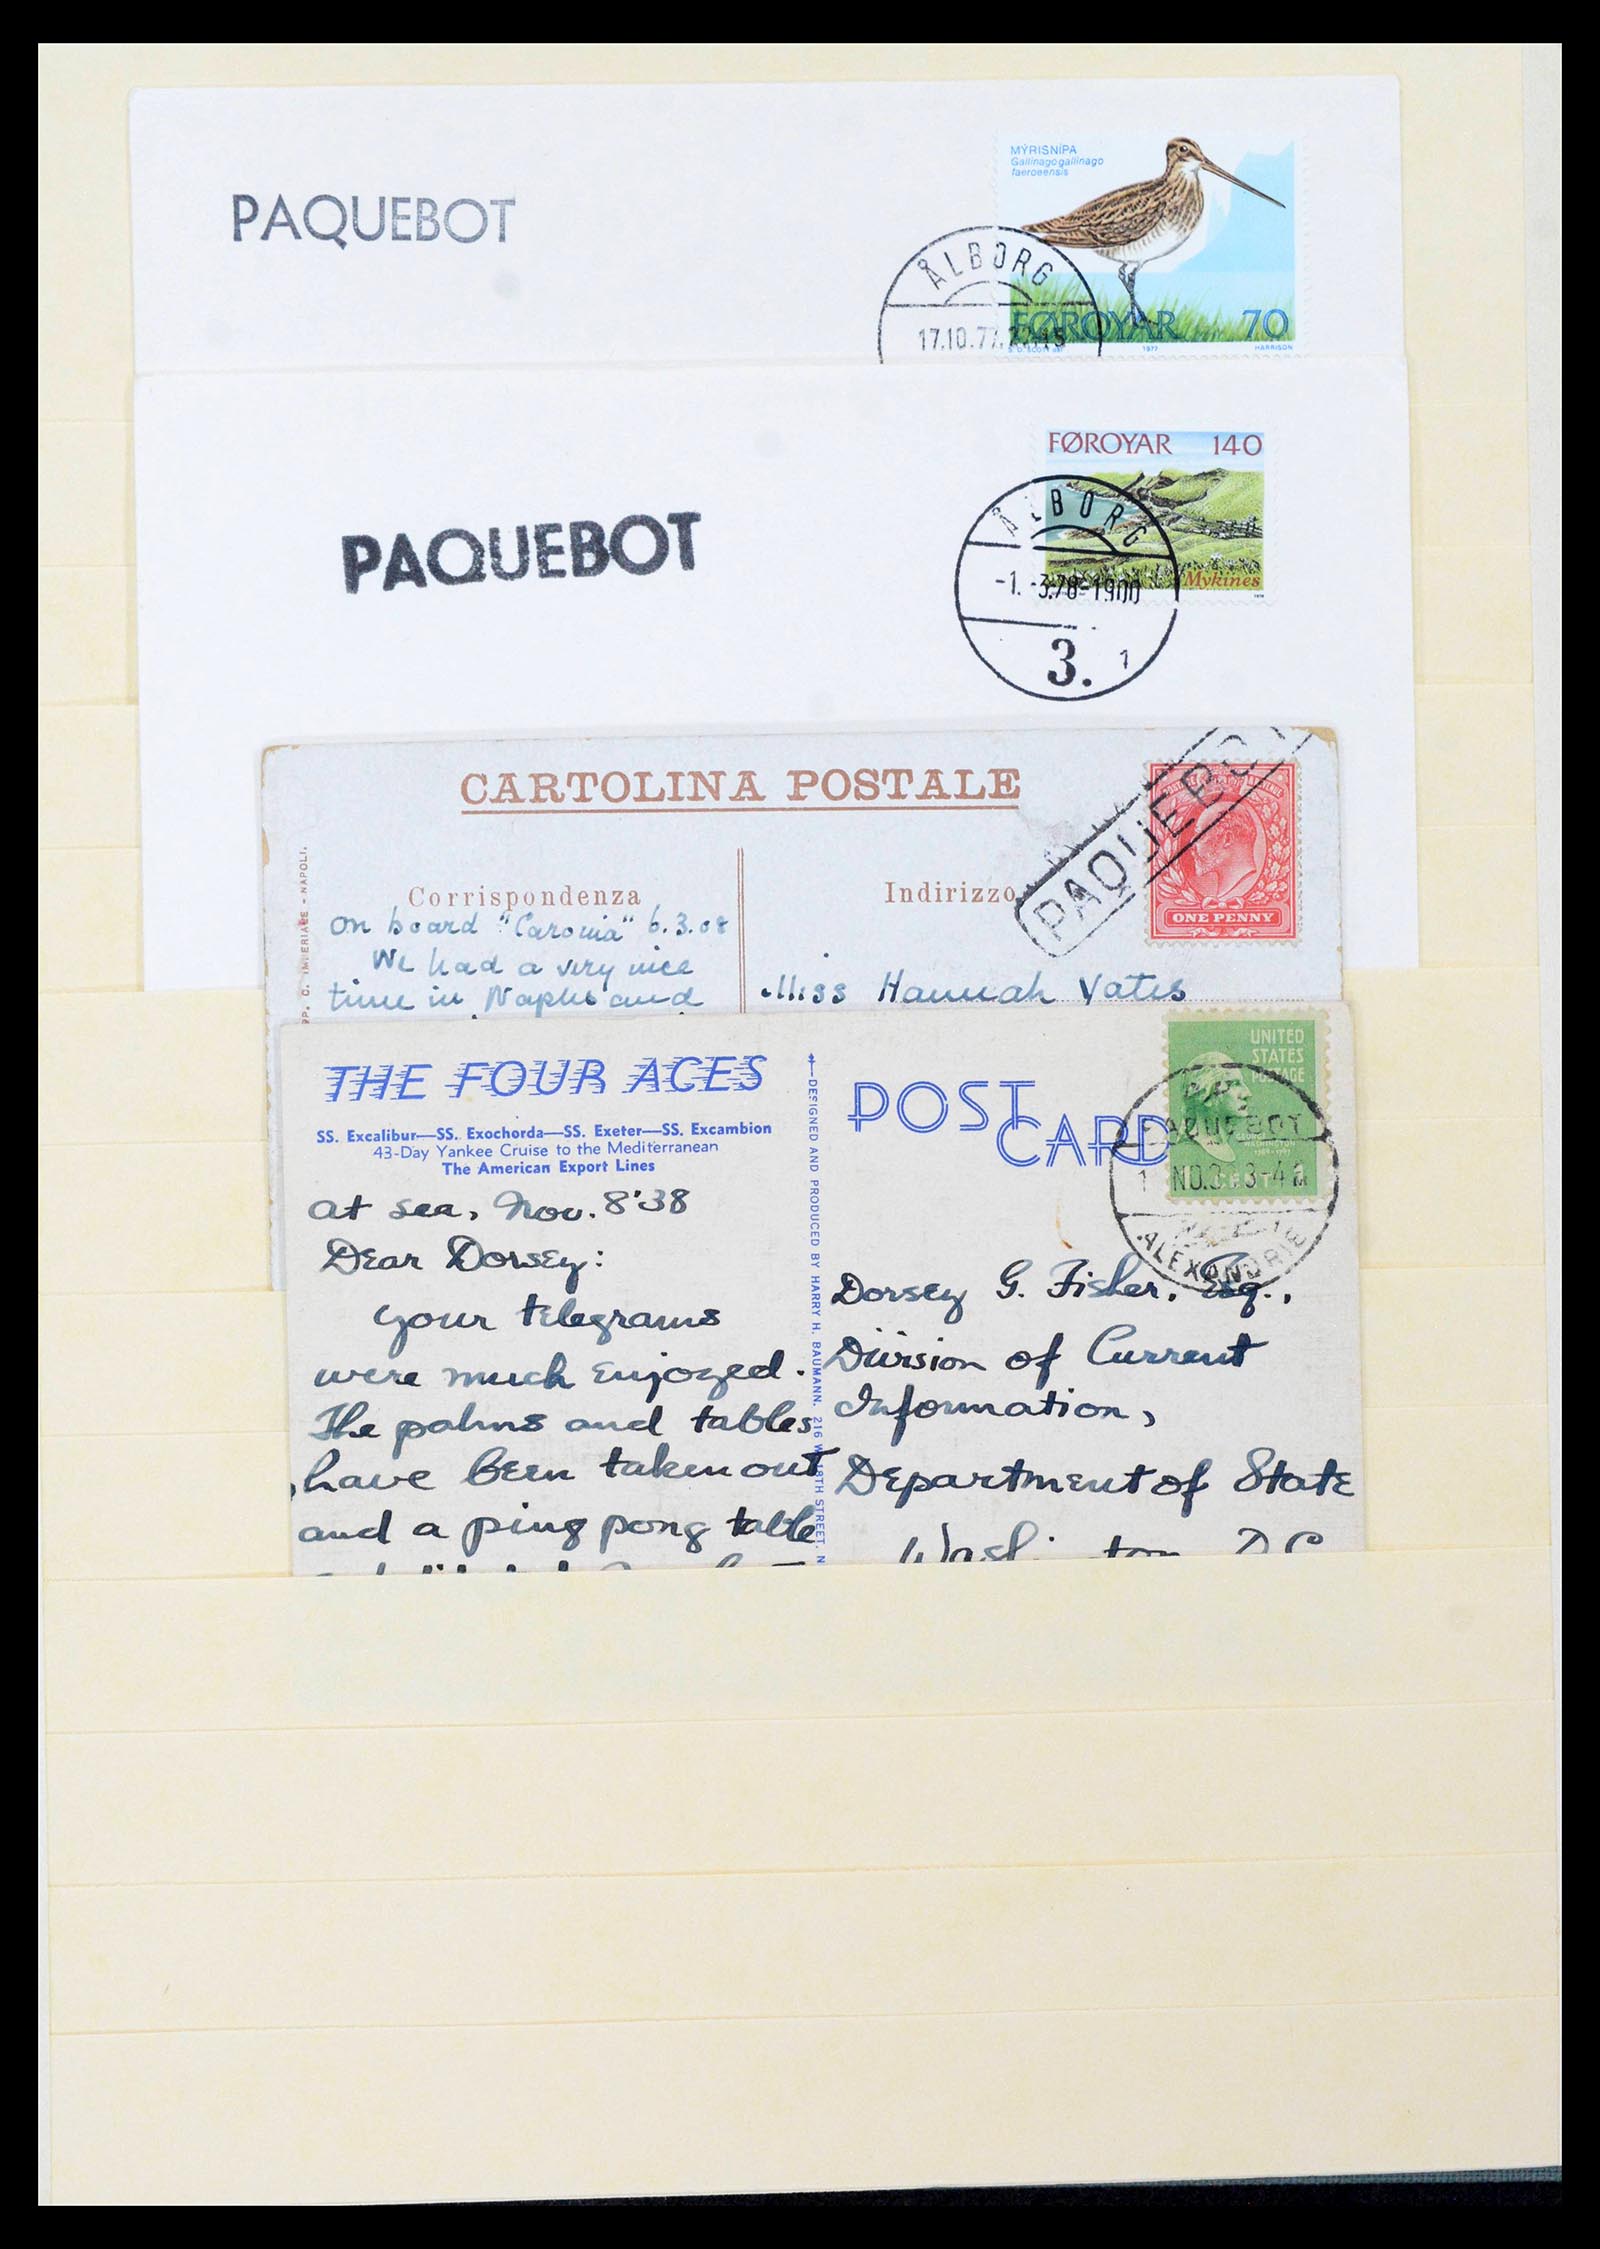 PAQUEBOT
MÝRISNÍPA
Gallinago gallinago
faeroeensis
ÅLBORG
17.10.77.
FØROYAR 70
1977
HARRISON
PAQUEBOT
FØROYAR 140
Mykines
ÅLBORG
-1.-3.78-1900
3. 1
CARTOLINA POSTALE
PAQUEBOT
ONE PENNY
NAPOLI.
Corrispondenza
Indirizzo
on board "Caronia" 6.3.08
We had a very nice
time in Naples and
Miss Hannah Yates
THE FOUR ACES
SS. Excalibur—SS. Exochorda—SS. Exeter—SS. Excambion
43-Day Yankee Cruise to the Mediterranean
The American Export Lines
at sea, Nov. 8'38
Dear Dorsey:
Your telegrams
were much enjoyed.
The palms and tables
have been taken out
and a ping pong table
DESIGNED AND PRODUCED BY HARRY H. BAUMANN. 216 W. 18TH STREET. N
POST
CARD
UNITED
STATES
POSTAGE
PAQUEBOT
ALEXANDRIE
Dorsey G. Fisher, Esq.,
Division of Current
Information,
Department of State
Washington D.C.